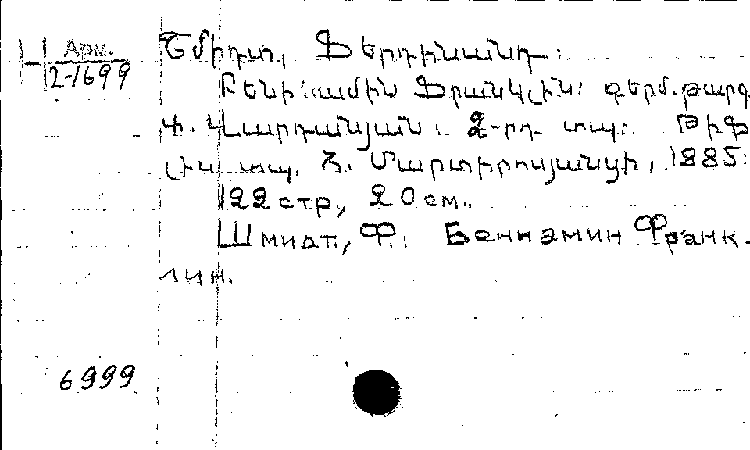 Н Арм.
2-1699
Շմիդտ, Ֆերդինանդ:
Բենիամին Ֆրանկլին: գերմ. թարգ
Փ. Վարդանյան: 2-րդ տպ: Թիֆ
լիս տպ. Յ. Մարտիրոսյանցի, 1885:
122 стр, 20 см.
Шмидт, Ф. Бениамин Франк-
лин.
6999